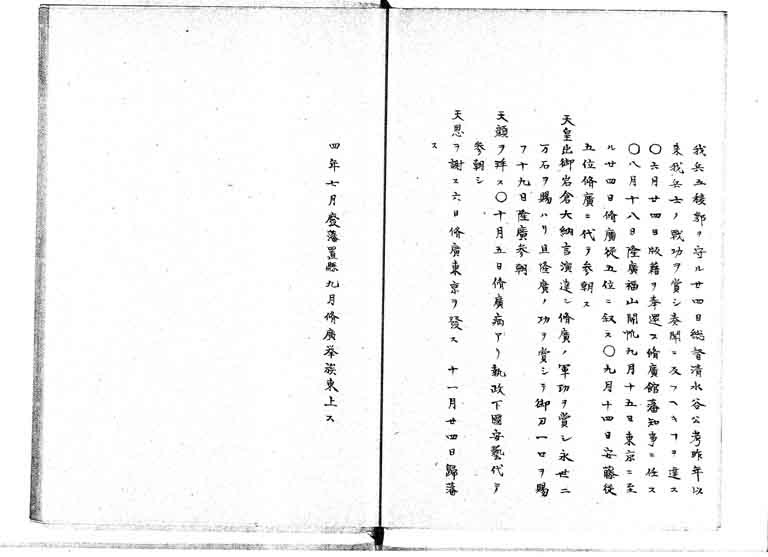 我兵五稜郭ヲ守ル廿四日総督清水谷公考昨年以
来我兵士ノ戦功ヲ賞シ奏聞ニ及フヘキヲ達ス
〇六月廿四日版籍ヲ奉還ス脩廣館藩知事ニ任ス
〇八月十八日隆廣福山開帆九月十五日東京ニ至
ル廿四日脩廣従五位ニ叙ス〇九月十四日安藤従
五位脩廣ニ代ヲ参朝ス
天皇出御岩倉大納言演達シ脩廣ノ軍功ヲ賞シ永世二
万石ヲ賜ハリ且隆廣ノ功ヲ賞シテ御刀一口ヲ賜
フ十九日隆廣参朝
天顔ヲ拝ス〇十月五日脩廣病アリ執政下國安藝代テ
参朝シ
天恩ヲ謝ス六日脩廣東京ヲ發ス 十一月廿四日歸藩
ス
四年七月廢藩置縣九月脩廣挙族東上ス